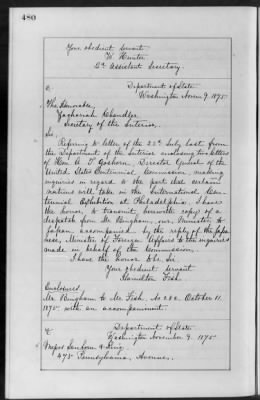 480
Your obedient servant
W. Hunter
2d Assistant Secretary.
Department of State
Washington Novem 9. 1875
The Honorable,
Zachariah Chandler
Secretary of the Interior.
Sir,
Referring to letter of the 22d July last from
the Department of the Interior enclosing two letters
of Hon A. T. Goshorn, Director General of the
United States Centennial Commission, making
inquiries in regard to the part that certain
nations will take in the International Cen-
tennial Exhibition at Philadelphia, I have
the honor, to transmit, herewith, copy of a
dispatch from Mr Bingham, our Minister to
Japan, accompanied by the reply of the Japa-
nese, Minister of Foreign Affairs to the inquiries
made in behalf of the Commission.
I have the honor to be, Sir,
Your obedient servant
Hamilton Fish
Enclosures.
Mr. Bingham to Mr. Fish, No 288. October 11.
1875 with an accompaniment
Department of State
Washington November 9. 1875
Messrs Sanborn & King
478 Pennsylvania, Avenue.